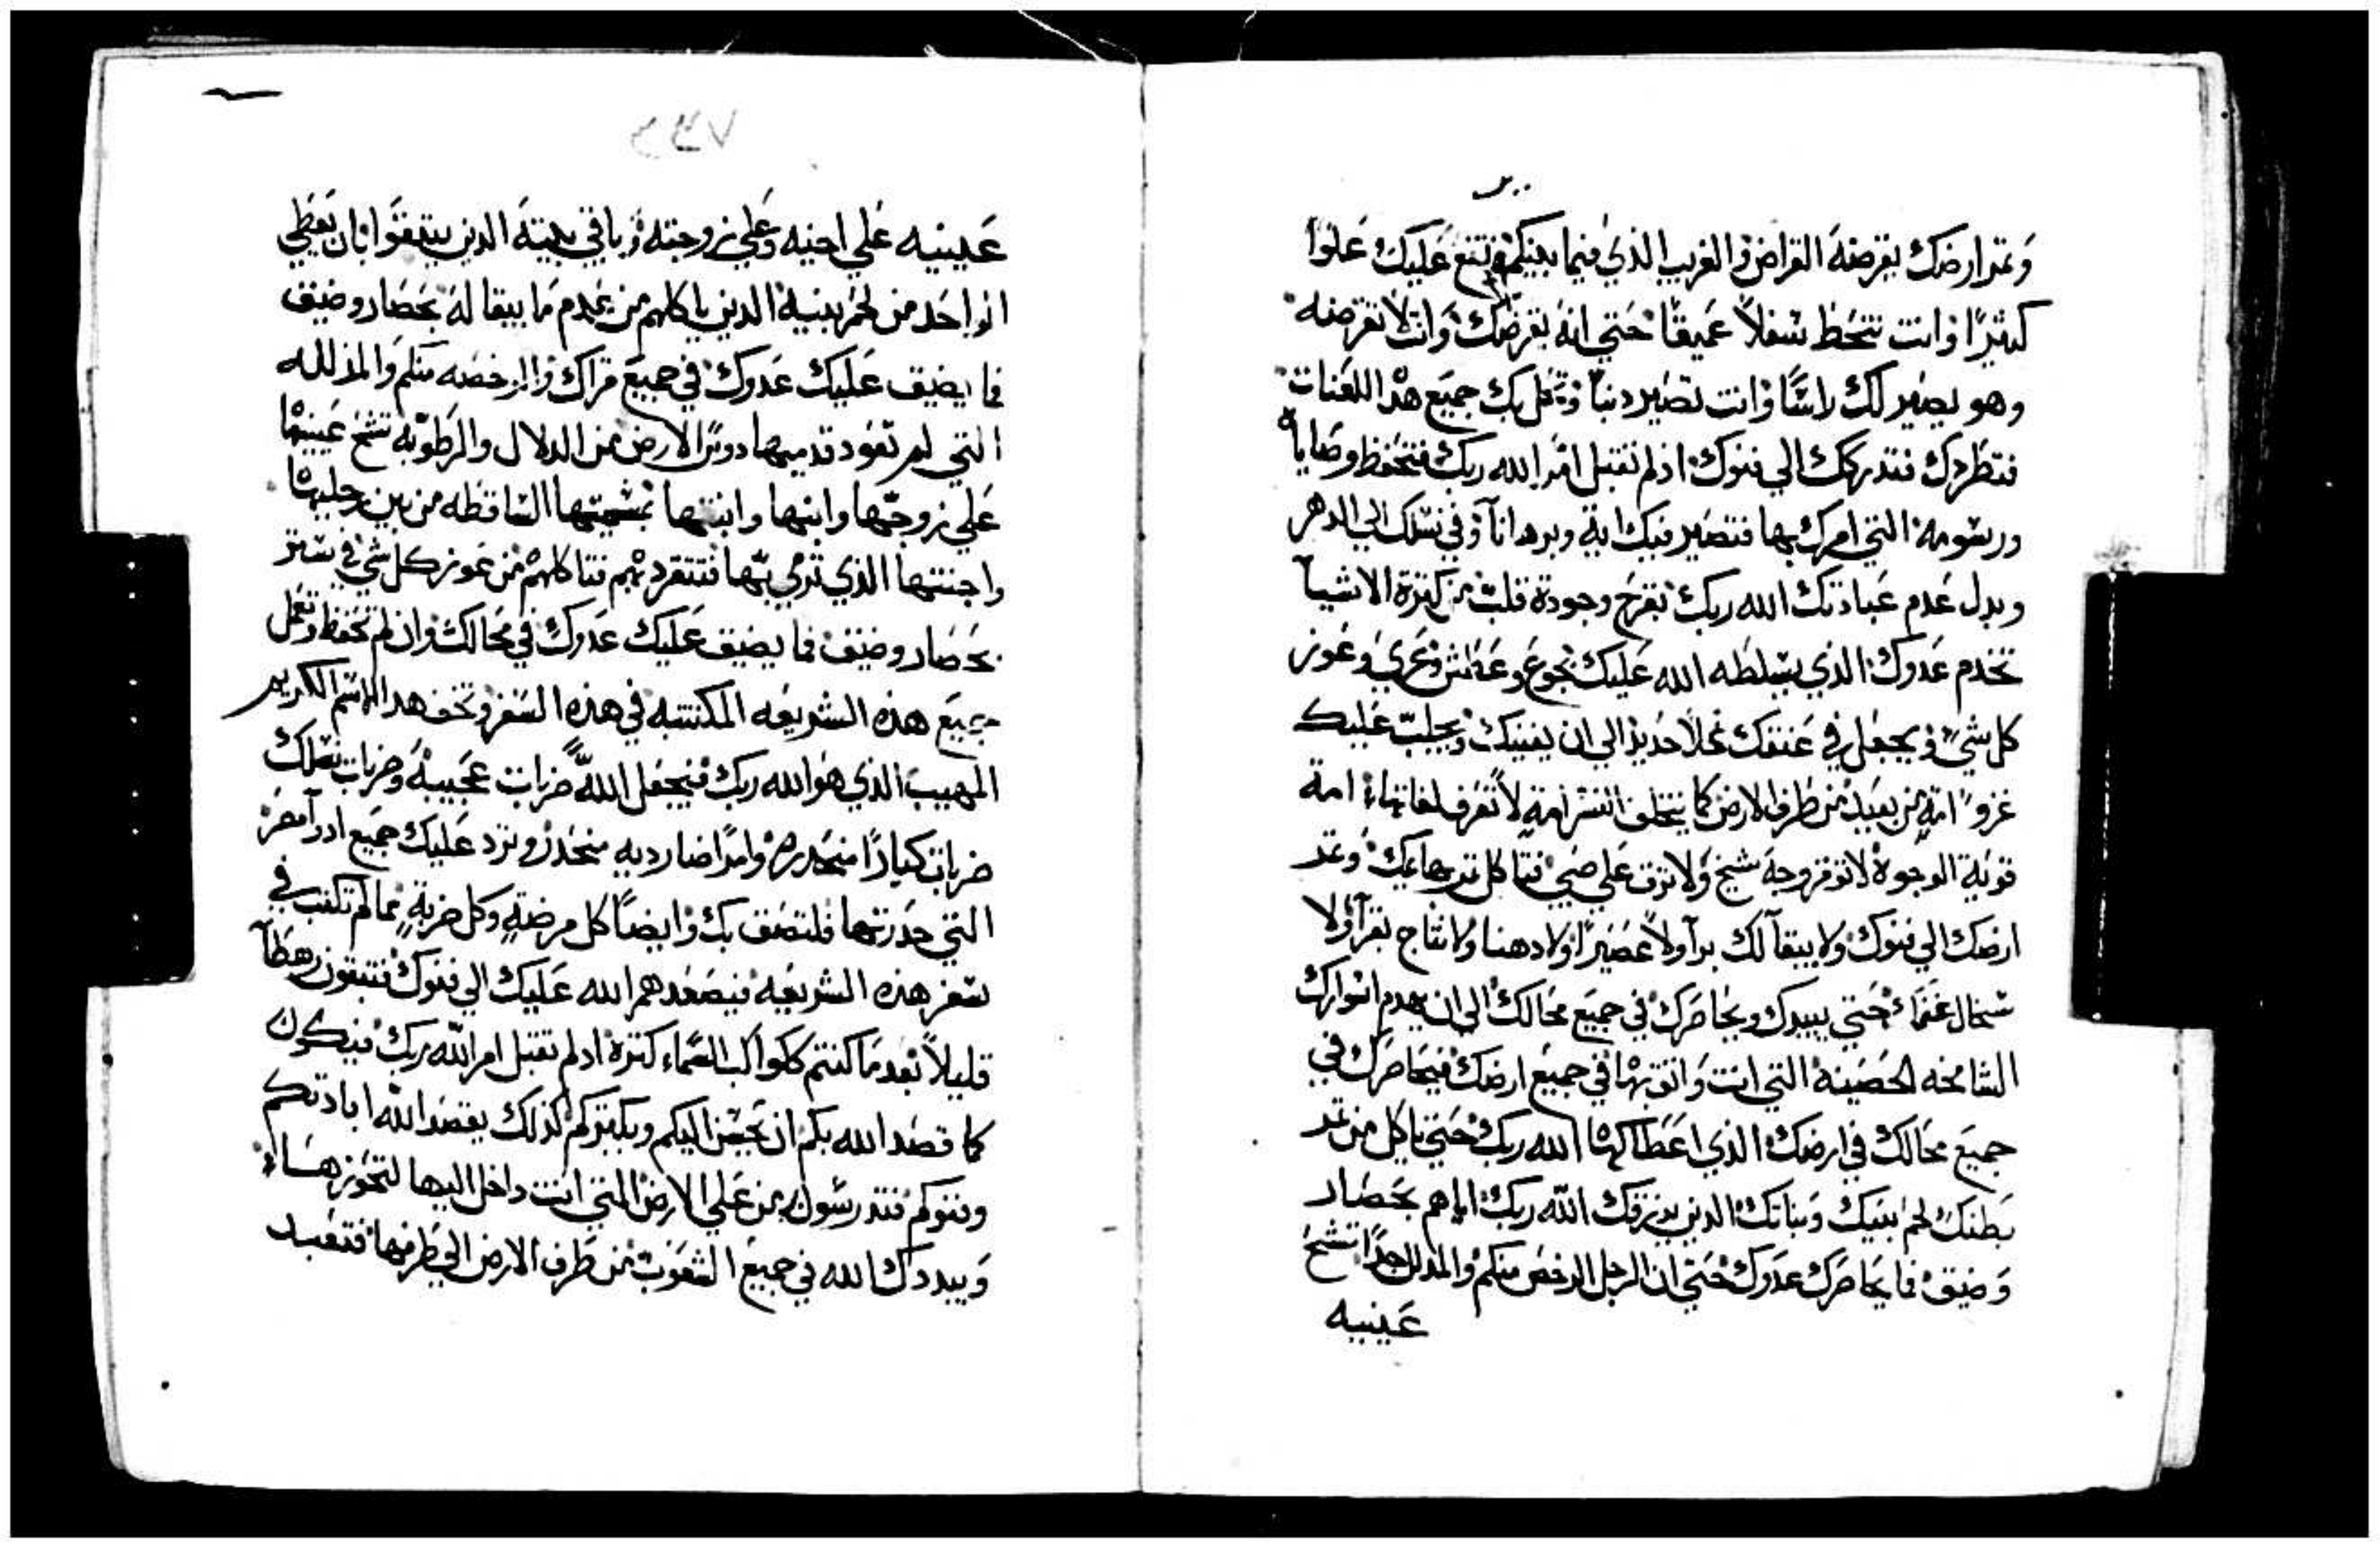 وتمر ارضك يقرضه القراض والغريب الذي فيما بينكم يرتفع عليك علوا
كثيرًا وانت تنحط سفلاً عميقًا حتي انه يقرضك وانت لا تقرضه
وهو يصير لك راسًا وانت تصير دنبًا وتحل بك جميع هذا اللعنات
فتطردك فتدركك الي فنوك اذ لم تقبل امر الله ربك فتحفظ وصاياه
ورسومه التي امرك بها فتصير فيك اية وبرهانآ وفي نسلك الي الدهر
وبدل عدم عبادتك الله ربك بفرح وجودة قلب من كثرة الاشيآ
تخدم عدوك الذي يسلطه الله عليك بجوع وعطش وعري وعوز
كل شي ويجعل في عنقك غلاً حديد الي ان يفنيك ويجلب عليك
غزو امة من بعيد من طرف الارض كما يتحلق النسر امة لا تعرف لغاتها امة
قوية الوجوه لا توقر وجه شيخ ولا ترق علي صبي فتاكل تمر بهايمك وتمر
ارضك الي فنوك ولا يبقآ لك برآ ولا عصيرًا ولا دهنا ولا نتاج بقرآ ولا
سخال غنماء حتي يبيدك ويحاصرك في جميع محالك الي ان يهدم اسوارك
الشامخه الحصينة التي انت واثق بها في جميع ارضك فيحاصرك في
جميع محالك في ارضك الذي اعطآكها الله ربك حتي تاكل من تمر
بطنك لحم بنيك وبناتك الدين يرزقك الله ربك اياهم بحصار
وضيق فما يحاصرك عدوك حتي ان الرجل الرخص منكم والمدلل جدًا تشح
عينيه
عينيه علي اخيه وعلي زوجته وباقي بنيه الدين يتبقوا بان يعطي
الواحد من لحم بنيه الدين ياكلهم من عدم ما يبقا له بحصار وضيق
فما يضيق عليك عدوك في جميع قراك والرخصه منكم والمذلله
التي لم تعود قدميها دوس الارض من الدلال والرطوبه تشح عينيها
علي زوجها وابنها وابنتها بمشيمتها الساقطه من بين رجليها
واجنتها الذي تربي بها فتتفرد بهم فتاكلهم من عوز كل شي في ستر
بحصار وضيق فما يضيق عليك عدوك في محالك وان لم تحفظ وتعمل
جميع هذه الشريعه المكتتبه في هذه السفر وتخف هدا الاسم الكريم
المهيب الذي هو الله ربك فيجعل الله ضربات عجيبة وضربات نسلك
ضربات كبارًا منحدره وامراضا رديه منحدره ويرد عليك جميع ادوآ مصر
التي حدرتها فلتصق بك وايضًا كل مرضةٍ وكل ضربةٍ مما لم تكتب في
سفر هذه الشريعه فيصعدهم الله عليك الي فنوك فتبقون رهطآ
قليلاً بعد ما كنتم ككواكب السماء كثرة اد لم تقبل امر الله ربك فيكون
كما قصد الله بكم ان يحسن اليكم ويكثركم كذلك يقصد الله ابادتكم
وفنوكم فتدرسون من علي الارض التي انت داخل اليها لتحوزها
ويبددك الله في جميع الشعوب من طرف الارض الي طرفها فتعبد